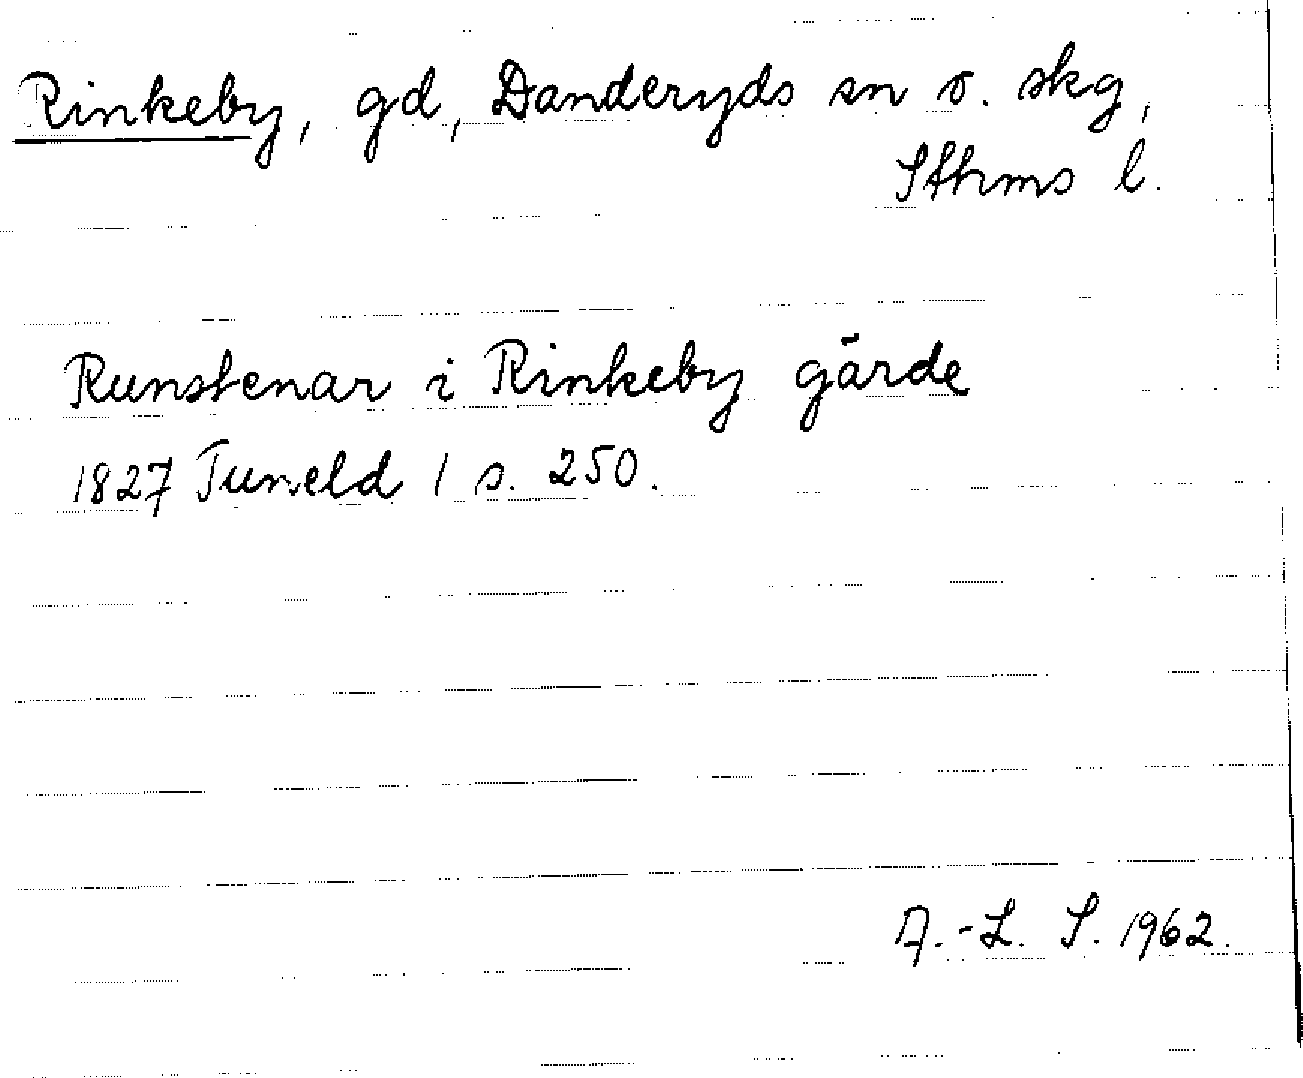 Rinkeby, gd, Danderyds sn o. skg,
Sthms l.
Runstenar i Rinkeby gärde
1827 Tuneld 1 s. 250.
A.-L. S. 1962.